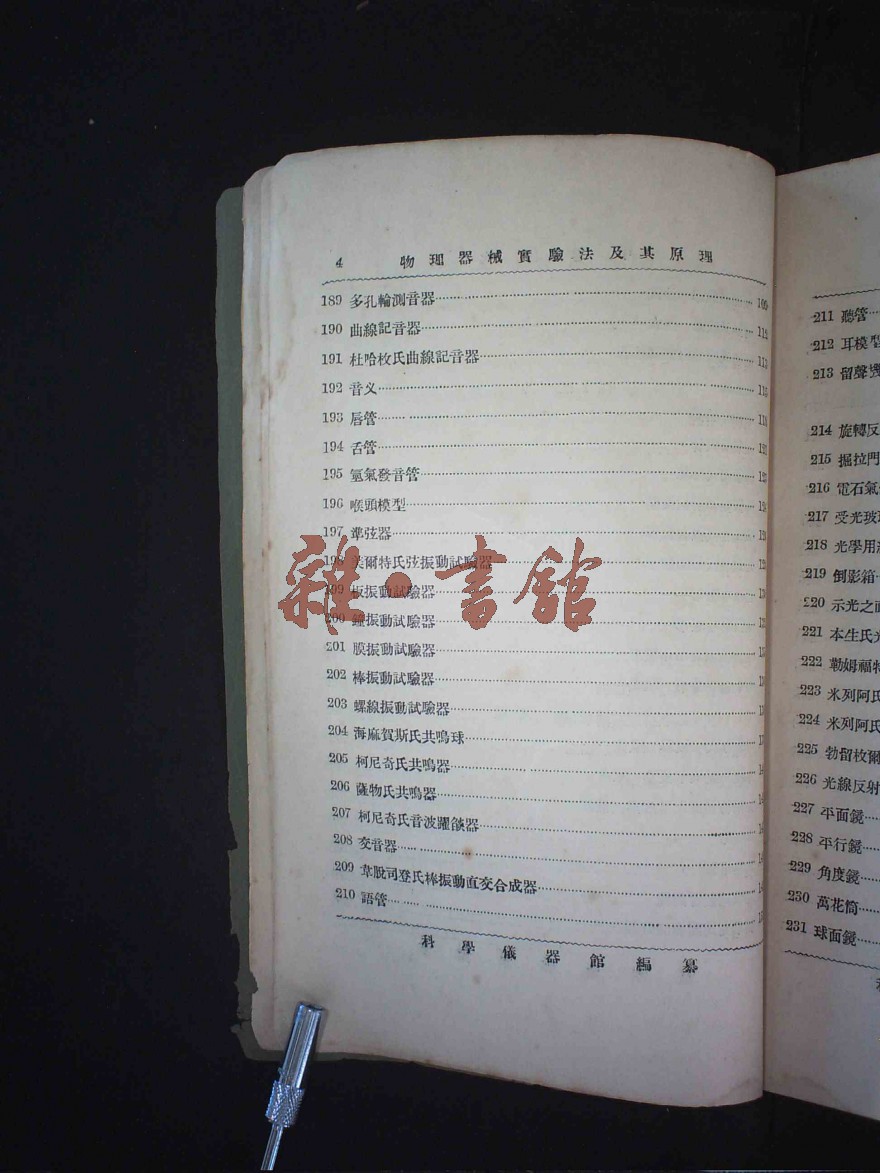 4 物理器械實驗法及其原理
189 多孔輪測音器
190 曲線記音器
191 杜哈枚氏曲線記音器
192 音义
193 唇管
194 舌管
195 氫氣發音管
196 喉頭模型
197 準弦器
198 美爾特氏弦振動試驗器
199 板振動試驗器
200 鐘振動試驗器
201 膜振動試驗器
202 棒振動試驗器
203 螺線振動試驗器
204 海麻賀斯氏共鳴球
205 柯尼奇氏共鳴器
206 薩物氏共鳴器
207 柯尼奇氏音波躍燄器
208 交音器
209 韋脫司登氏棒振動直交合成器
210 語管
科學儀器館編纂
雜·書館
211 聽管
212 耳模型
213 留聲
214 旋轉反
215 掘拉門
216 電石氣
217 受光玻
218 光學用
219 倒影箱
220 示光之面
221 本生氏光
222 勒姆福特
223 米列阿氏
224 米列阿氏
225 勃留枚爾
226 光線反射
227 平面鏡
228 平行鏡
229 角度鏡
230 萬花筒
231 球面鏡